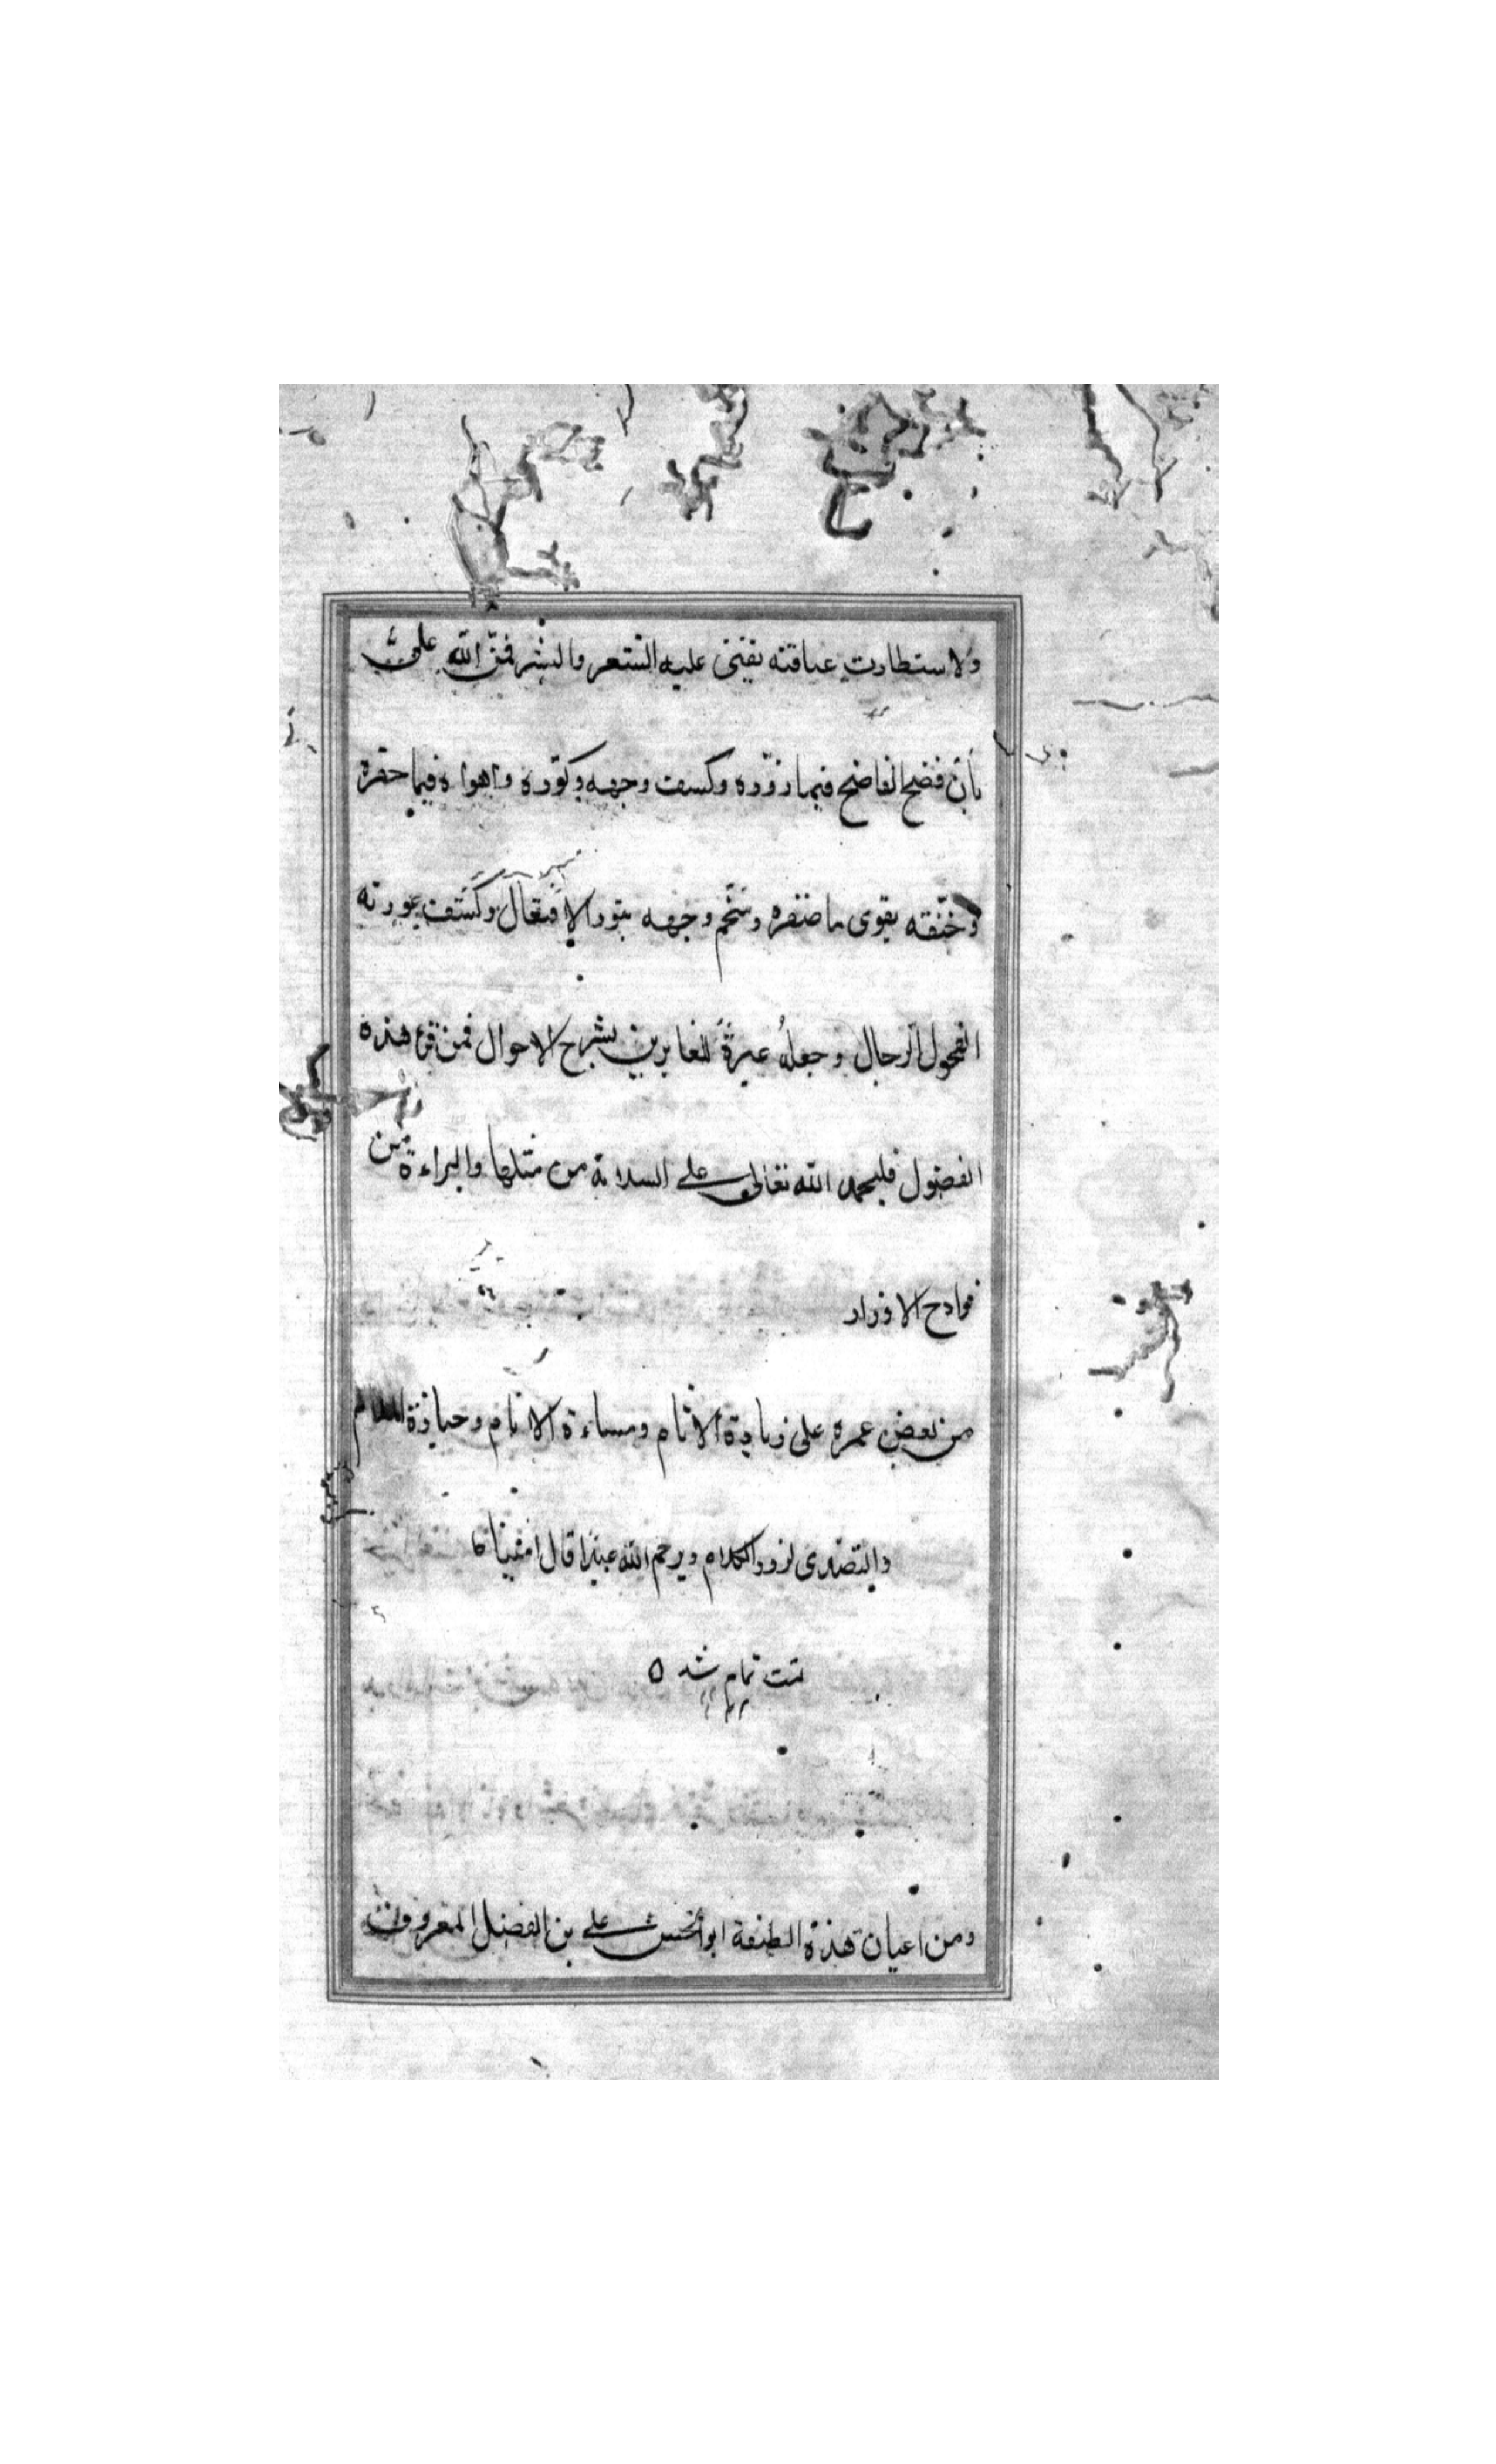 ولاستطارت عياقته بفيتى عليه الشعر والبشر فمنّ الله علىّ
بأن فضح الفاضح فيما زوّره وكسف وجهه وكوّره واهواه فيما حفره
وخنّقه بقوى ما ضفره وسخّم وجهه بتور الافتعال وكشف عورته
الفحول الرجال وجعلهُ عبرةً للغابرين بشرح الاحوال فمن قرع هذه
الفصول فليحمد الله تعالى على السلامة من مثلها والبراءة من
فوادح الاوزار
من بعض عمره على زيادة الاثام ومساءة الانام وحيازة
والتصدى لزور الكلام ويرحم الله عبدا قال امينا
تمت تمام شد ۵
ومن اعيان هذه الطبقة ابوالحسن على بن الفضل المعروف